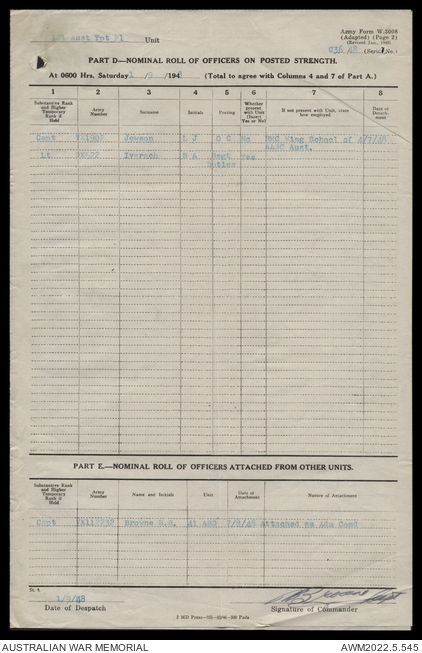 Aust Tpt Pl Unit
Army Form W.3008
(Adapted) (Page 2)
(Revised Jan., 1943)
(Serial No.)
PART D—NOMINAL ROLL OF OFFICERS ON POSTED STRENGTH.
At 0600 Hrs. Saturday 1 /9 /194 (Total to agree with Columns 4 and 7 of Part A.)
1 2 3 4 5 6 7 8
Substantive Rank and Higher Temporary Rank if Held
Army Number
Surname
Initials
Posting
Whether present with Unit (Insert Yes or No)
If not present with Unit, state how employed
Date of Detachment
Capt Jawson L J O C No Wing School of 4/7/48
AASC Aust.
Lt. Iverach B A Regt Yes
Duties
PART E.—NOMINAL ROLL OF OFFICERS ATTACHED FROM OTHER UNITS.
Substantive Rank and Higher Temporary Rank if Held
Army Number
Name and Initials
Unit
Date of Attachment
Nature of Attachment
Capt Browne 41 7/8/48 Attached as Adm Comd
1/9/48
Date of Despatch
Signature of Commander
AUSTRALIAN WAR MEMORIAL
AWM2022.5.545